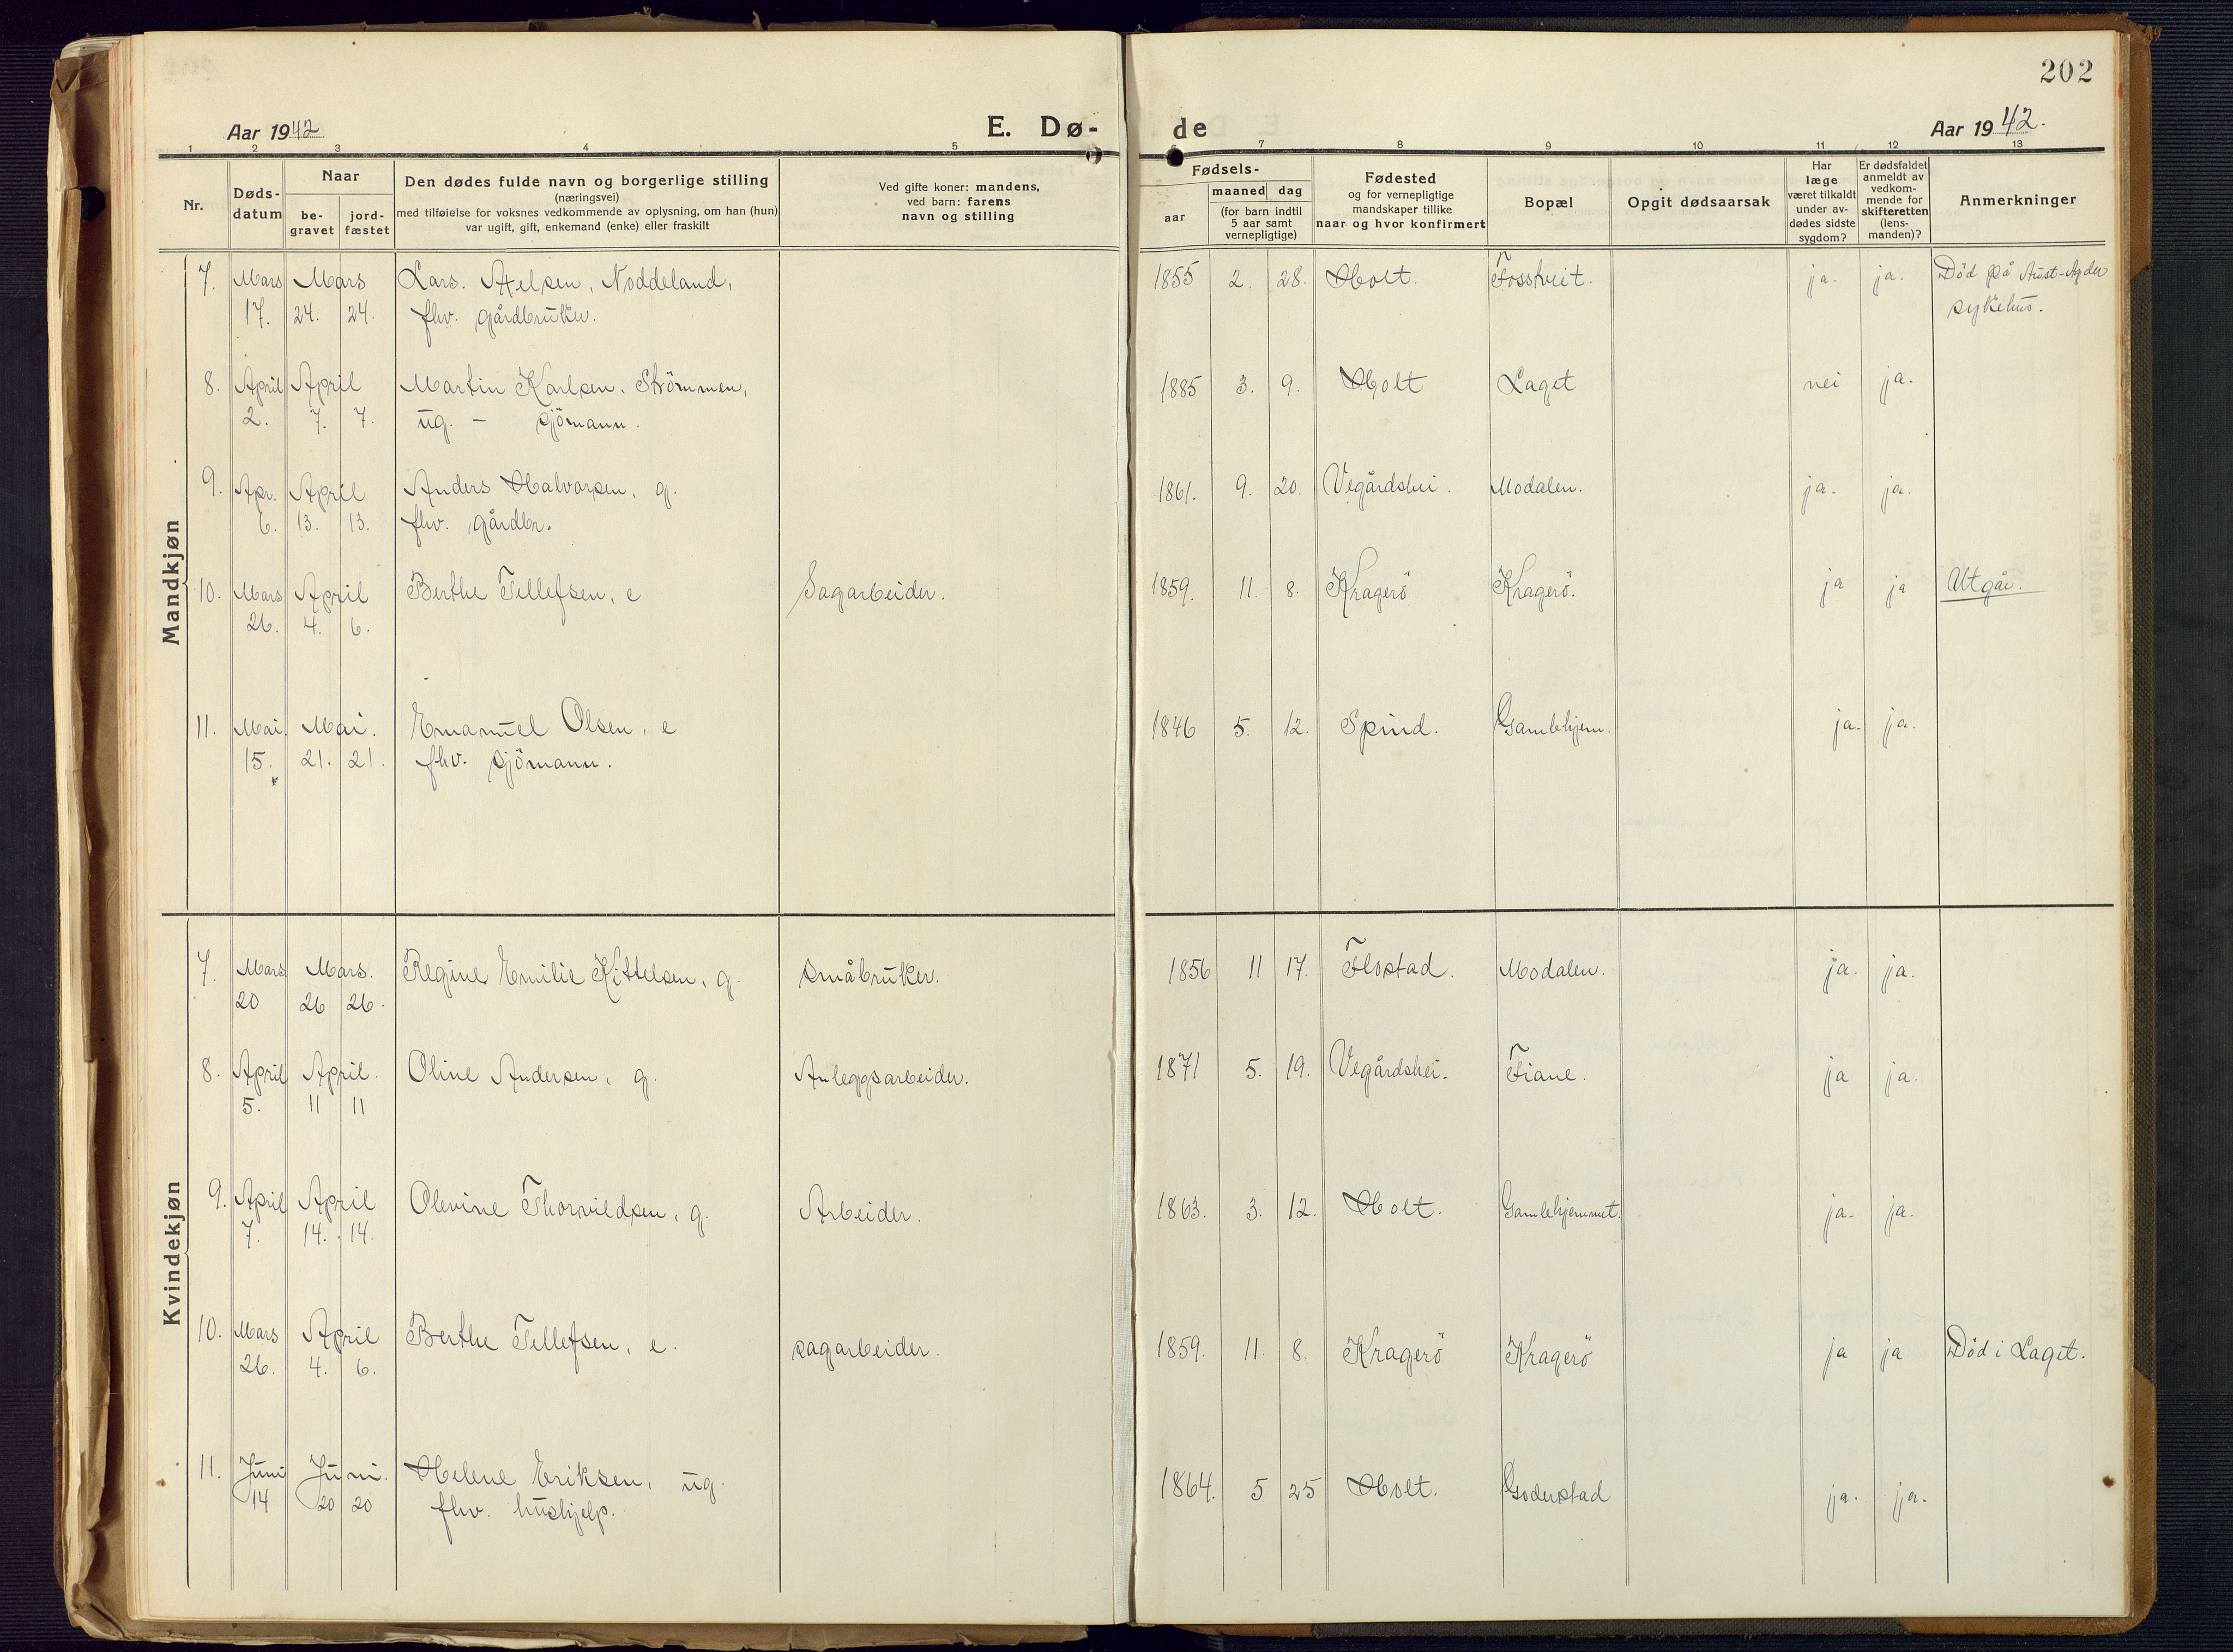 202
Aar 1942
E. Dø-
de
Aar 1942.
1 2 3 4 5 6 7 8 9 10 11 12 13
Nr.
Døds-
datum
Naar
be-
gravet
jord-
fæstet
Den dødes fulde navn og borgerlige stilling
(næringsvei)
med tilføielse for voksnes vedkommende av oplysning, om han (hun)
var ugift, gift, enkemand (enke) eller fraskilt
Ved gifte koner: mandens,
ved barn: farens
navn og stilling
Fødsels-
aar
maaned dag
(for barn indtil
5 aar samt
vernepligtige)
Fødested
og for vernepligtige
mandskaper tillike
naar og hvor konfirmert
Bopæl
Opgit dødsaarsak
Har
læge
været tilkaldt
under av-
dødes sidste
sygdom?
Er dødsfaldet
anmeldt av
vedkom-
mende for
skifteretten
(lens-
manden)?
Anmerkninger
Mandkjøn
7. Mars Mars Lars. Axelsen, Noddeland, 1855 2. 28. Holt. Fosstveit. ja. ja. Död på Aust-Agder
17. 24. 24. fhv. gårdbruker. sykehus.
8. April April Martin Karlsen. Strömmen, 1885 3. 9. Holt Laget nei ja.
2. 7. 7. ug. - sjömann.
9. Apr. April Anders Halvorsen, g. 1861. 9. 20. Vegårdshei. Modalen. ja. ja.
6. 13. 13. fhv. gårdbr.
10. Mars April Berthe Tellefsen, e Sagarbeider. 1859. 11. 8. Kragerö Kragerö. ja ja Utgår.
26. 4. 6.
11. Mai. Mai. Emanuel Olsen, e 1846 5. 12. Spind. Gamlehjem. ja. ja.
15. 21. 21. fhv. sjömann.
Kvindekjøn
7. Mars Mars. Regine Emilie Kittelsen, g. småbruker. 1856 11 17. Flostad. Modalen. ja. ja.
20 26 26.
8. April April. Oline Andersen, g. Anleggsarbeider. 1871 5. 19. Vegårdshei. Fiane. ja ja.
5. 11 11
9. April April Olevine Thorvildsen, g. Arbeider. 1863. 3. 12. Holt. Gamlehjemmet. ja. ja.
7. 14. 14.
10. Mars April Berthe Tellefsen, e. sagarbeider. 1859. 11. 8. Kragerö Kragerö ja ja Död i Laget.
26. 4. 6.
11. Juni Juni. Helene Eriksen, ug. 1864. 5 25 Holt. Goderstad ja. ja.
14 20 20 fhv. hushjelp.